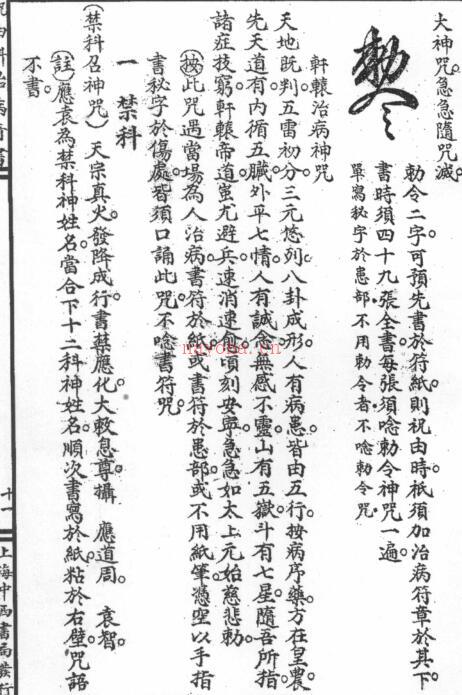 大神咒。急急隨咒滅。
敕令
敕令二字。可預先書於符紙。則祝由時。祇須加治病符章於其下。
書時須四十九張全書。每張須唸敕令神咒一遍。
單寫秘字於患部。不用敕令者。不唸敕令咒。
軒轅治病神咒
天地既判。五雷初分。三元悠列。八卦成形。人有病患。皆由五行。按病序藥。方在皇農。
先天道有。內循五臟。外平七情。人有誠念。無感不靈。山有五嶽。斗有七星。隨吾所指。
諸症技窮。軒轅帝道。蚩尤避兵。速消速愈。頃刻安寧。急急如太上元始慈悲勅
(按)此咒遇當場為人治病。書符於紙。或書符於患部。或不用紙筆。憑空以手指
書秘字於傷處。皆須口誦此咒。不唸書符咒。
一 禁科
(禁科召神咒) 天宗真火。發降成行。書蔡應化。大敕息尊攝 應道周。 袁智。
(註)應袁為禁科神姓名。當合下十二科神姓名。順次書寫於紙。粘於右壁。咒語
不書。
咒由科治病符書
十一
上海中西書局發行
nayona.cn